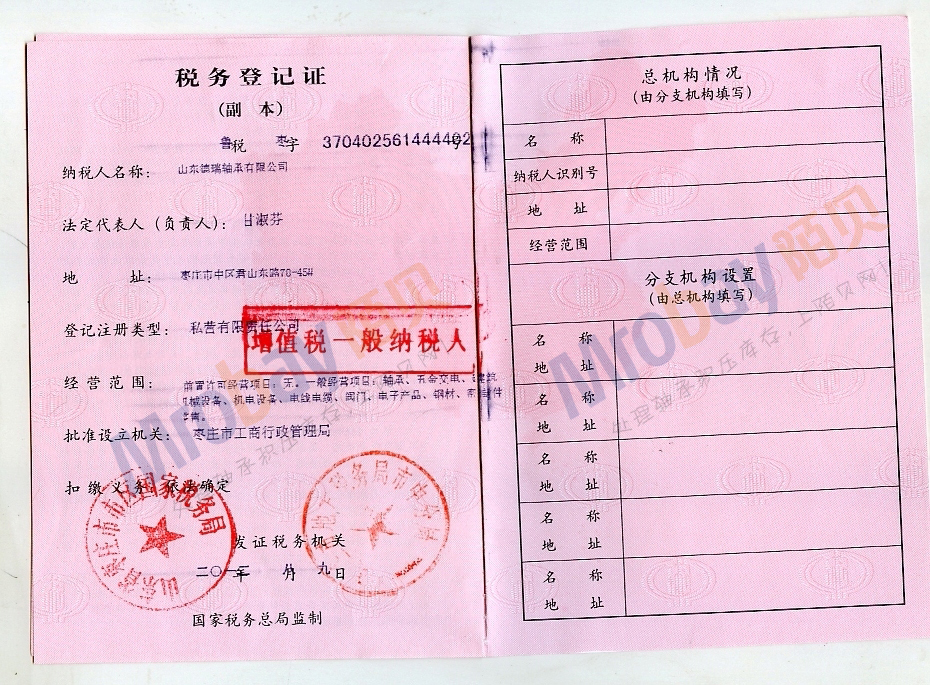 税务登记证
(副 本)
鲁税 枣字 370402561444402号
纳税人名称: 山东德瑞轴承有限公司
法定代表人(负责人): 甘淑芬
地 址: 枣庄市中区君山东路70-45#
登记注册类型: 私营有限责任公司
增值税一般纳税人
经营范围: 前置许可经营项目:无。一般经营项目:轴承、五金交电、建筑
机械设备、机电设备、电线电缆、阀门、电子产品、钢材、
批准设立机关: 枣庄市工商行政管理局
扣缴义务: 依法确定
山东省枣庄市市中区国家税务局
发证税务机关
年 月 九日
国家税务总局监制
总机构情况
(由分支机构填写)
名 称
纳税人识别号
地 址
经营范围
分支机构设置
(由总机构填写)
名 称
地 址
名 称
地 址
名 称
地 址
名 称
地 址
名 称
地 址
Mrobay陌贝
处理轴承积压库存,上陌贝网!
Mrobay陌贝
处理轴承积压库存,上陌贝网!